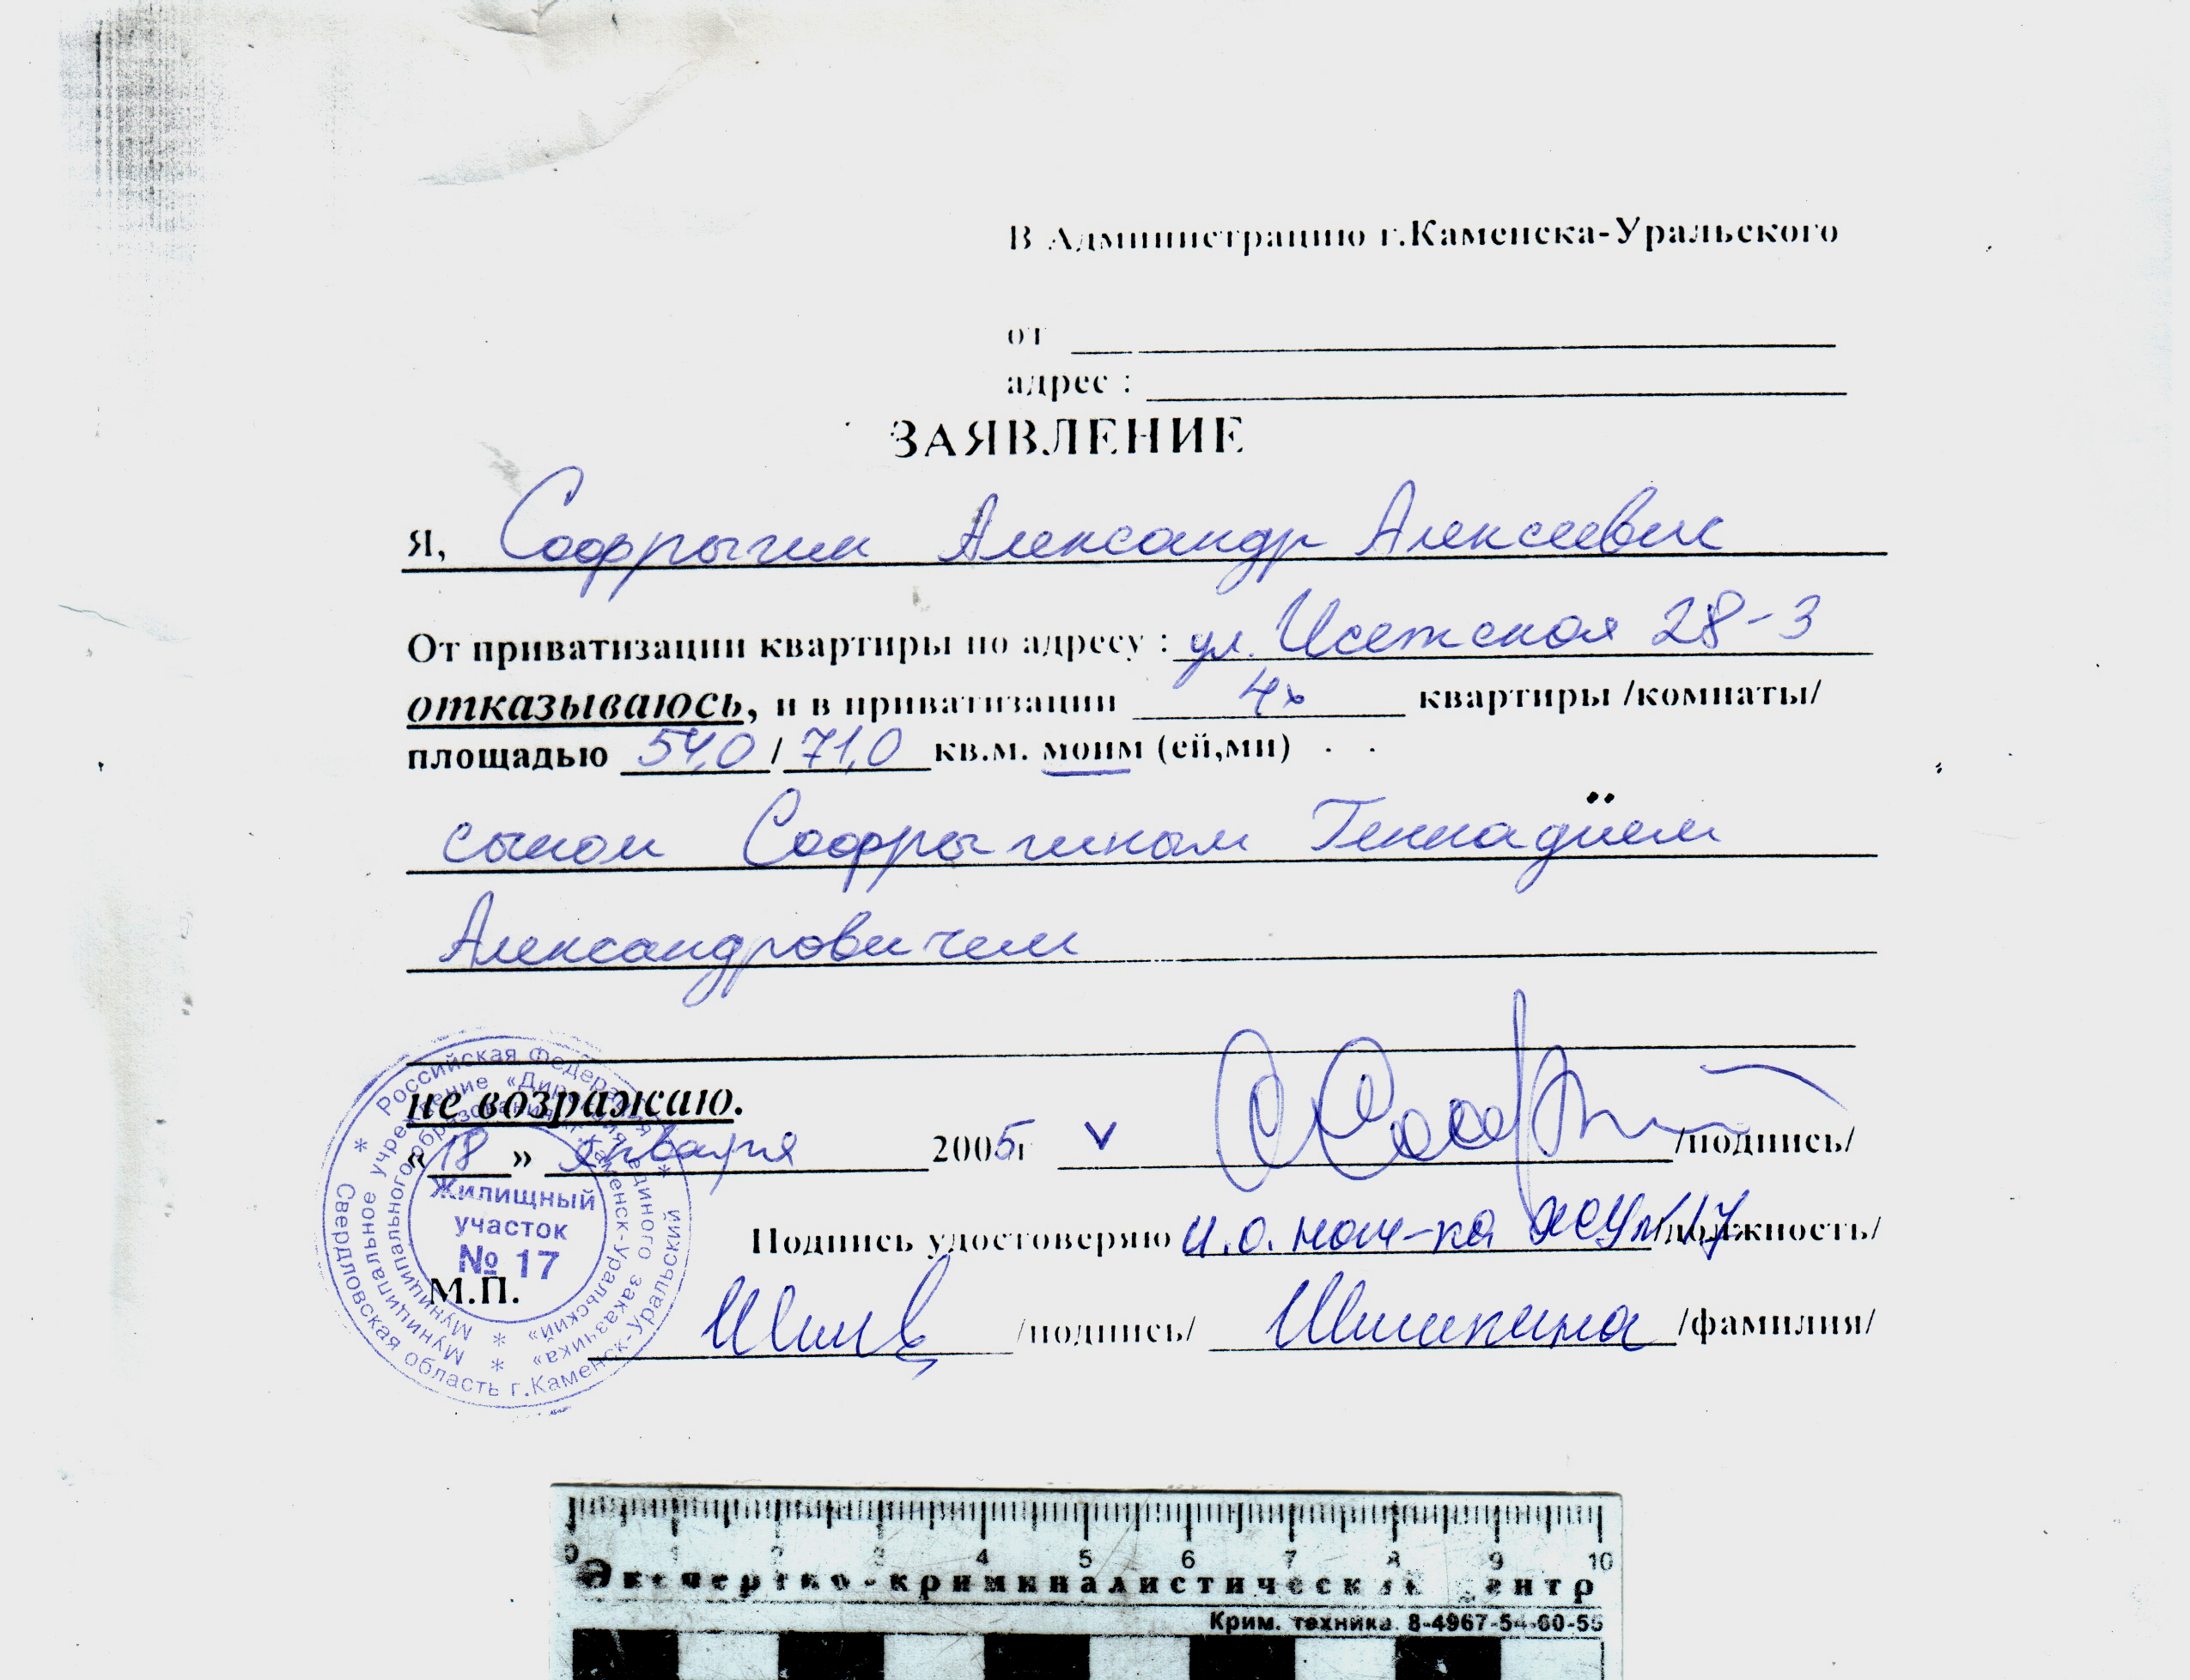 В Администрацию г.Каменска-Уральского
от
адрес :
ЗАЯВЛЕНИЕ
Я, Софрыгин Александр Алексеевич
От приватизации квартиры по адресу : ул. Исетская 28-3
отказываюсь, и в приватизации 4х квартиры /комнаты/
площадью 54,0 / 71,0 кв.м. моим (ей,ми)
сыном Софрыгиным Геннадием
Александровичем
не возражаю.
«18» января 2005г V /подпись/
Подпись удостоверяю и.о. нач-ка ЖУ №17 /должность/
М.П.
/подпись/ Шишкина /фамилия/
Российская Федерация * Свердловская область г.Каменск-Уральский *
Муниципальное учреждение «Дирекция единого заказчика» *
Муниципального образования «г. Каменск-Уральский» *
Жилищный
участок
№ 17
0 1 2 3 4 5 6 7 8 9 10
Экспертно-криминалистический центр
Крим. техника. 8-4967-54-60-55